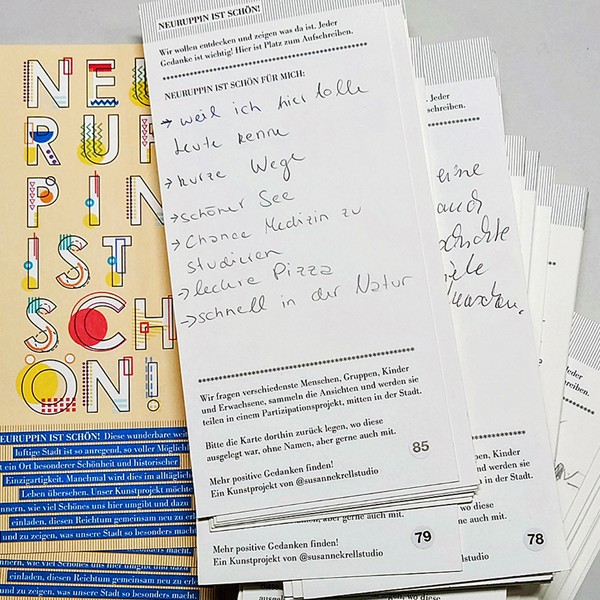 NEU
RUP
PIN
IST
SCH
ÖN!
NEURUPPIN IST SCHÖN! Diese wunderbare
luftige Stadt ist so anregend, so voller Möglich
ist ein Ort besonderer Schönheit und historischer
Einzigartigkeit. Manchmal wird dies im alltägli
Leben übersehen. Unser Kunstprojekt möchte
nnern, wie viel Schönes uns hier umgibt und dazu
einladen, diesen Reichtum gemeinsam neu zu
und zu zeigen, was unsere Stadt so besonders mach
einladen, diesen Reichtum gemeinsam neu zu
und zu zeigen, was unsere Stadt so besonders mach
NEURUPPIN IST SCHÖN!
Wir wollen entdecken und zeigen was da ist. Jeder
Gedanke ist wichtig! Hier ist Platz zum Aufschreiben.
NEURUPPIN IST SCHÖN FÜR MICH:
→ weil ich hier tolle
Leute kenne
→ kurze Wege
→ schöner See
→ Chance Medizin zu
studieren
→ leckere Pizza
→ schnell in der Natur
Wir fragen verschiedenste Menschen, Gruppen, Kinder
und Erwachsene, sammeln die Ansichten und werden sie
teilen in einem Partizipationsprojekt, mitten in der Stadt.
Bitte die Karte dorthin zurück legen, wo diese
ausgelegt war, ohne Namen, aber gerne auch mit.
85
Mehr positive Gedanken finden!
Ein Kunstprojekt von @susannekrellstudio
Mehr positive Gedanken finden!
Ein Kunstprojekt von @susannekrellstudio
79
. Jeder
schreiben.
auch
ppen, Kinder
nd werden sie
in der Stadt.
wo diese
auch mit.
78
studio
Jeder
schreiben.